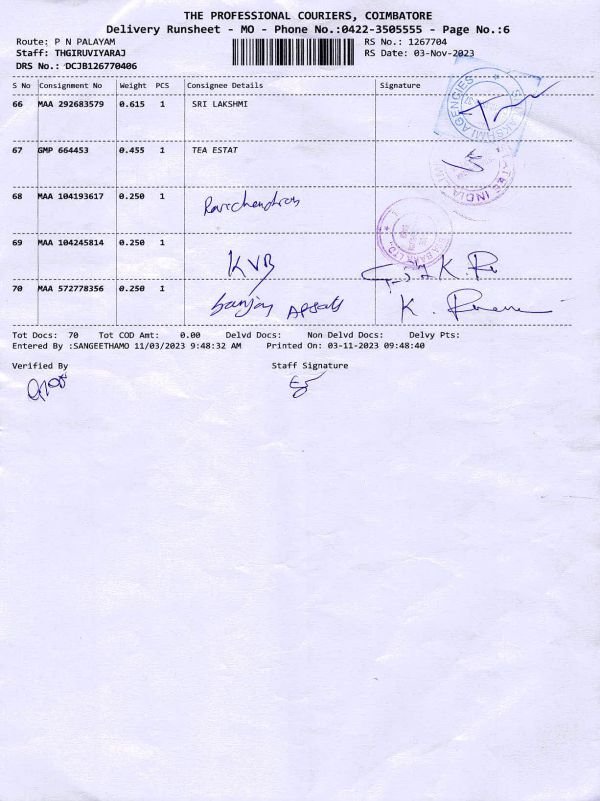 THE PROFESSIONAL COURIERS, COIMBATORE
Delivery Runsheet - MO - Phone No.:0422-3505555 - Page No.:6
Route: P N PALAYAM RS No.: 1267704
Staff: THGIRUVIYARAJ RS Date: 03-Nov-2023
DRS No.: DCJB126770406
S No Consignment No Weight PCS Consignee Details Signature
66 MAA 292683579 0.615 1 SRI LAKSHMI
67 GMP 664453 0.455 1 TEA ESTAT
68 MAA 104193617 0.250 1 Ravichendran
69 MAA 104245814 0.250 1 KVB
70 MAA 572778356 0.250 1 Sanjay
Tot Docs: 70 Tot COD Amt: 0.00 Delvd Docs: Non Delvd Docs: Delvy Pts:
Entered By :SANGEETHAMO 11/03/2023 9:48:32 AM Printed On: 03-11-2023 09:48:40
Verified By Staff Signature